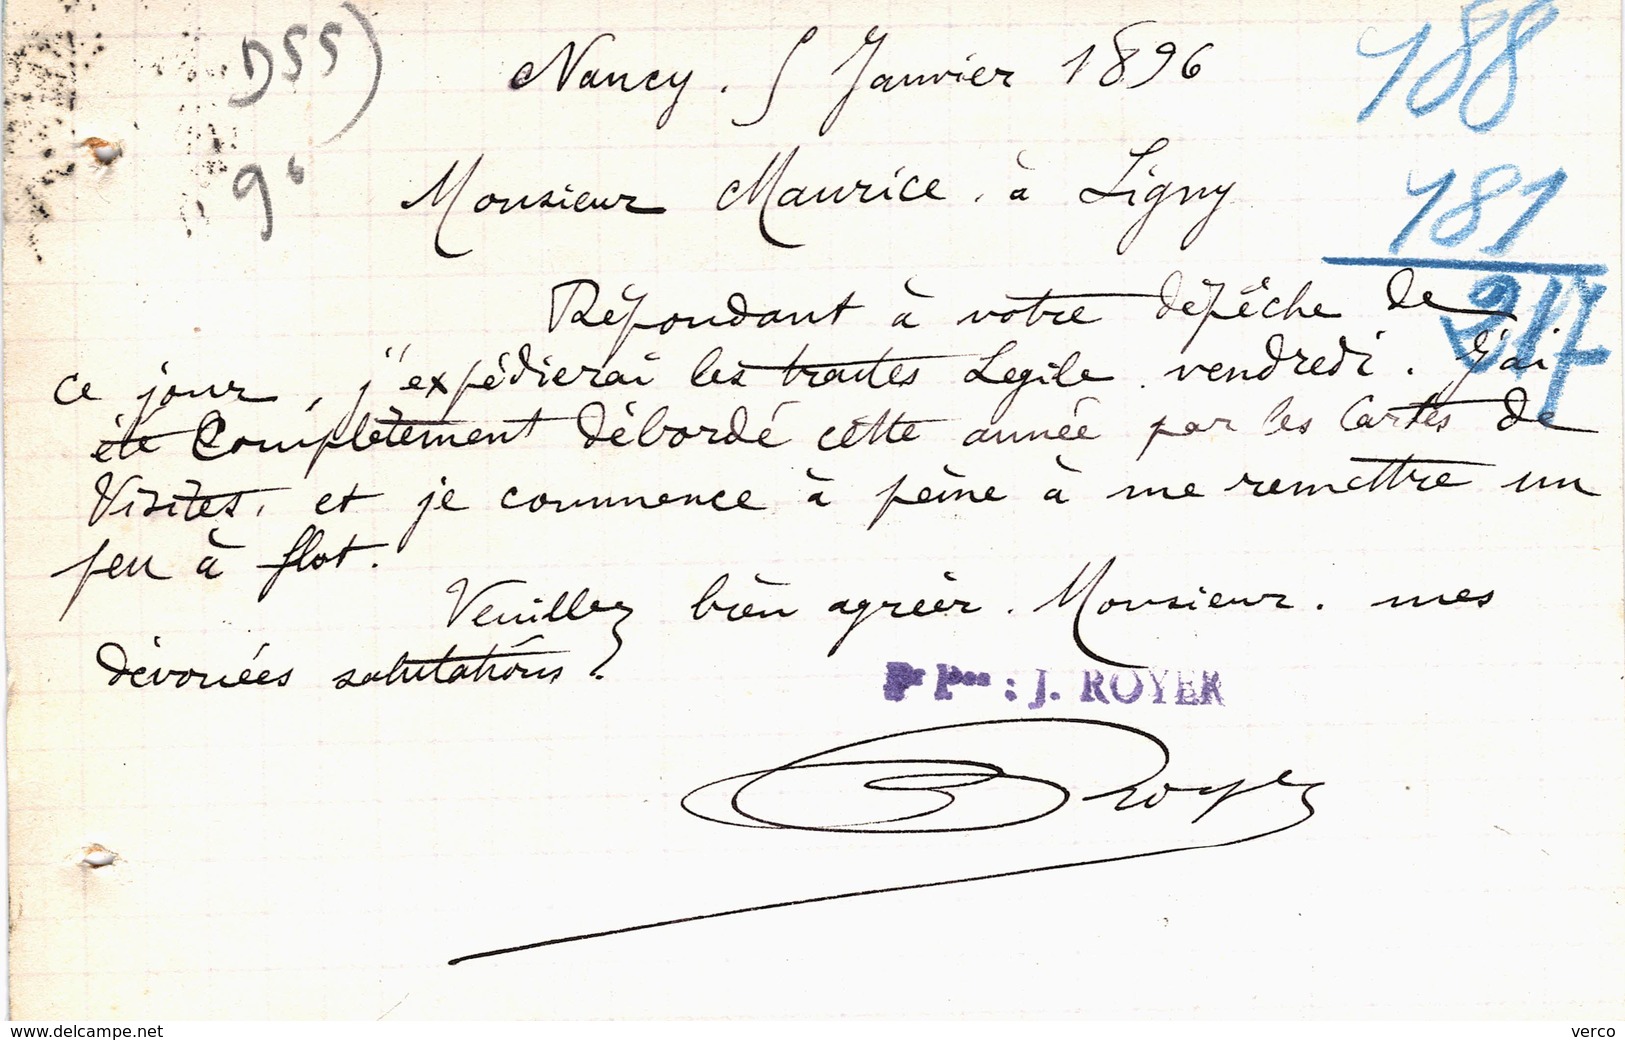 DSS)
96
188
181
217
Nancy. 5 Janvier 1896
Monsieur Maurice. à Ligny
Répondant à votre dépêche de
ce jour, j'expédierai les traites Legile vendredi. J'ai
été complètement débordé cette année par les Cartes de
Visites, et je commence à peine à me remettre un
peu à flot.
Veuillez bien agréer. Monsieur. mes
dévouées salutations.
Pr Pon : J. ROYER
Royer
www.delcampe.net
verco